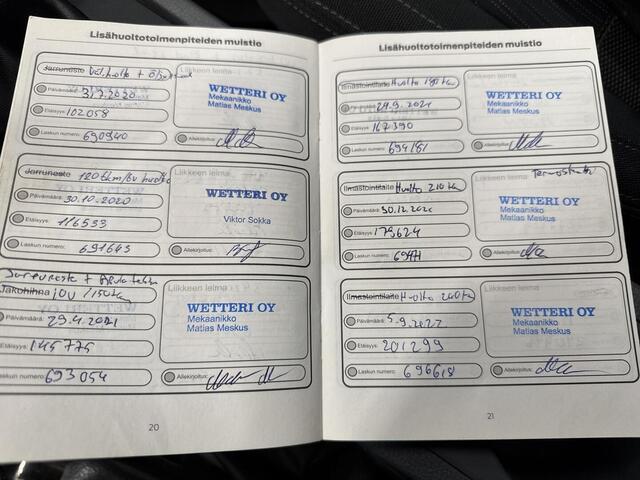 Lisähuoltotoimenpiteiden muistio
Jarruneste Väl.huolto +
Päivämäärä: 31.7.2020
Etäisyys: 102058
Laskun numero: 690940
Liikkeen leima
WETTERI OY
Mekaanikko
Matias Meskus
Allekirjoitus:
Jarruneste 120tkm/6v huolto
Päivämäärä: 30.10.2020
Etäisyys: 116533
Laskun numero: 691643
Liikkeen leima
WETTERI OY
Viktor Sokka
Allekirjoitus:
Jarruneste +
Jakohihna 10v /150tkm
Päivämäärä: 29.4.2021
Etäisyys: 145775
Laskun numero: 693054
Liikkeen leima
WETTERI OY
Mekaanikko
Matias Meskus
Allekirjoitus:
20
Lisähuoltotoimenpiteiden muistio
Ilmastointilaite Huolto 180 tkm
Päivämäärä: 29.9.2021
Etäisyys: 167390
Laskun numero: 694181
Liikkeen leima
WETTERI OY
Mekaanikko
Matias Meskus
Allekirjoitus:
Ilmastointilaite Huolto 210 tkm
Päivämäärä: 30.12.2021
Etäisyys: 179624
Laskun numero:
Liikkeen leima
WETTERI OY
Mekaanikko
Matias Meskus
Allekirjoitus:
Ilmastointilaite Huolto 240 tkm
Päivämäärä: 5.9.2022
Etäisyys: 201299
Laskun numero: 696618
Liikkeen leima
WETTERI OY
Mekaanikko
Matias Meskus
Allekirjoitus:
21